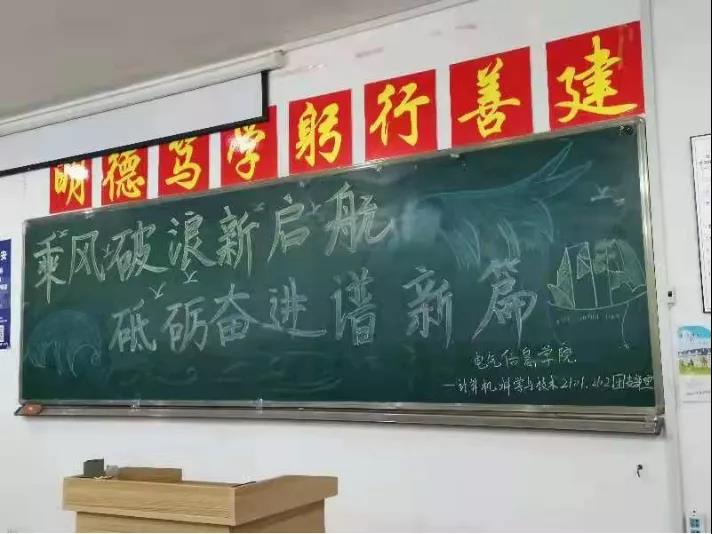 明德笃学躬行善建
乘风破浪新启航
砥砺奋进谱新篇
电气信息学院
—计算机科学与技术2101、2102团支部